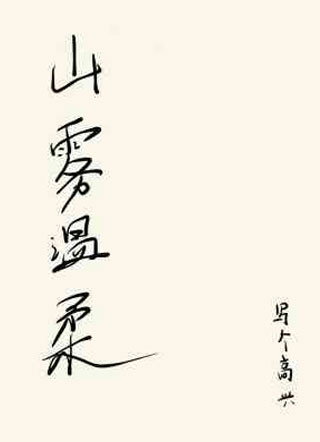 山雾温柔
写个高兴